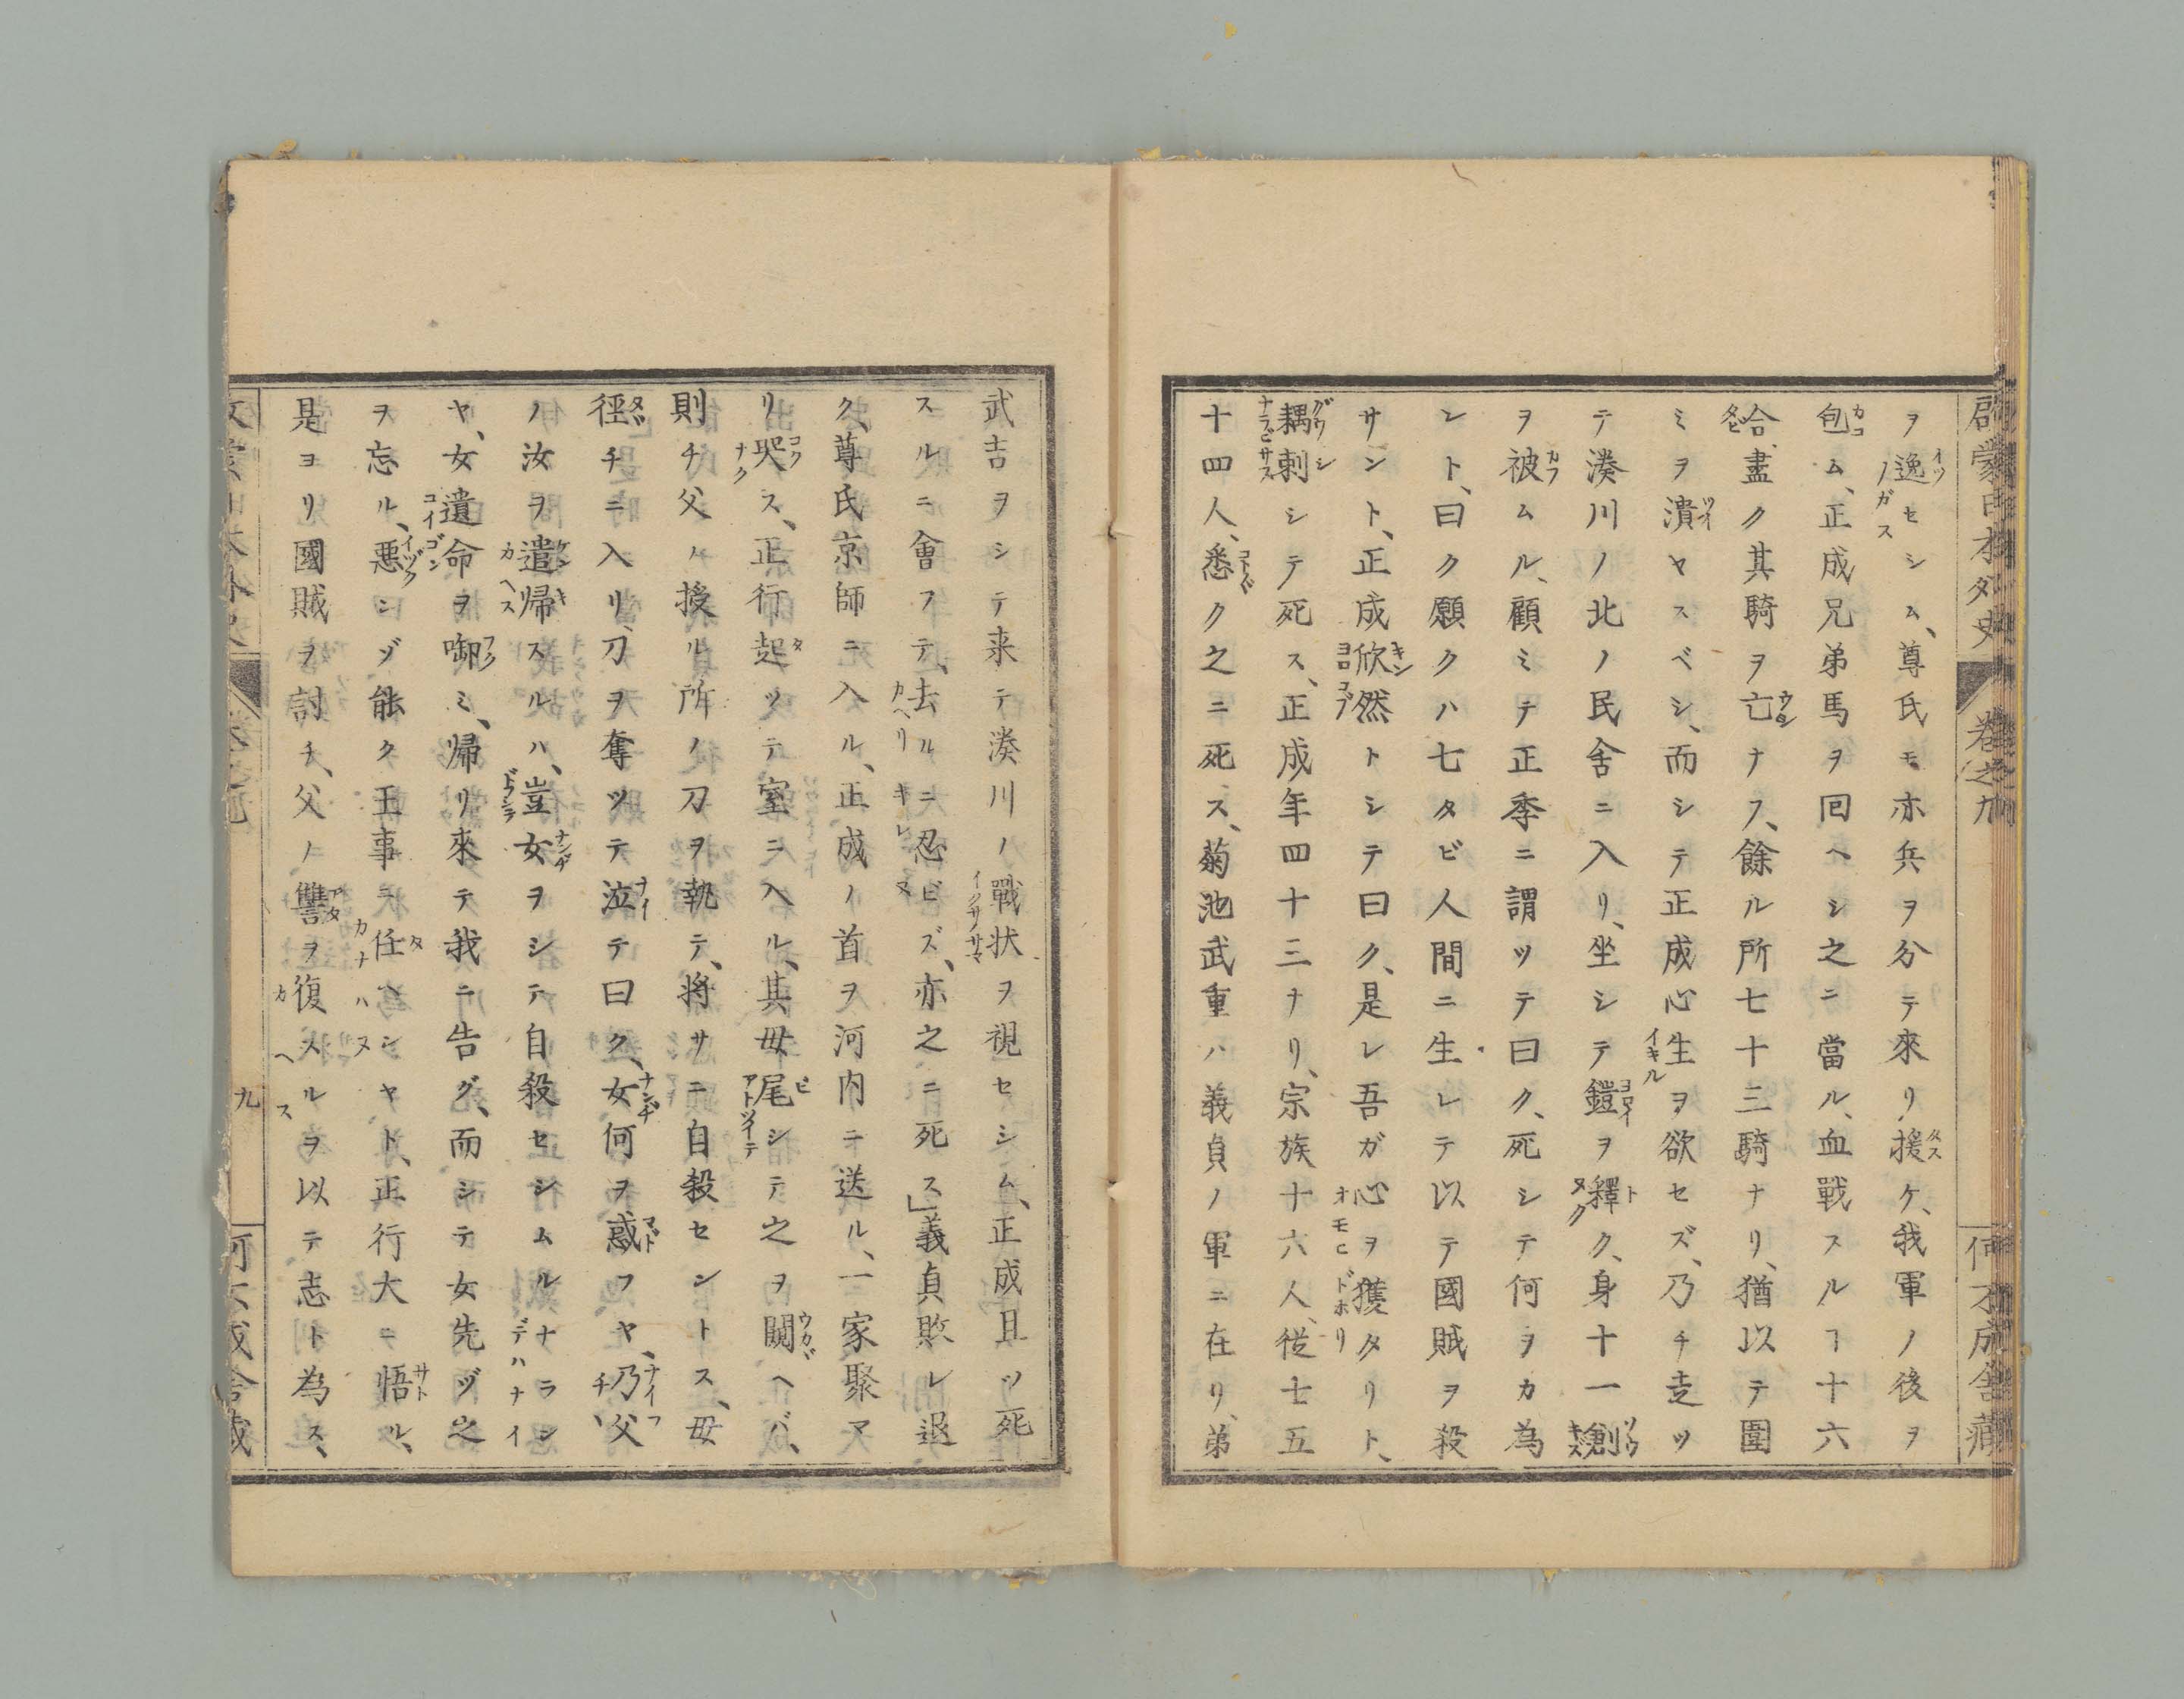 啓蒙日本外史 巻之九 何不成舎蔵
ヲ逸セシム、尊氏モ亦兵ヲ分テ來リ援ケ、我軍ノ後ヲ
包ム、正成兄弟馬ヲ回ヘシ之ニ當ル、血戰スルヿ十六
合、盡ク其騎ヲ亡ナフ、餘ル所七十三騎ナリ、猶以テ圍
ミヲ潰ヤスベシ、而シテ正成心生ヲ欲セズ、乃チ走ツ
テ湊川ノ北ノ民舎ニ入リ、坐シテ鎧ヲ釋ク、身十一創
ヲ被ムル、顧ミテ正季ニ謂ツテ曰ク、死シテ何ヲカ為
ント、曰ク願クハ七タビ人間ニ生レテ以テ國賊ヲ殺
サント、正成欣然トシテ曰ク、是レ吾ガ心ヲ獲タリト、
耦刺シテ死ス、正成年四十三ナリ、宗族十六人、従士五
十四人、悉ク之ニ死ス、菊池武重ハ義貞ノ軍ニ在リ、弟
武吉ヲシテ来テ湊川ノ戰状ヲ視セシム、正成且ツ死
スルニ會フテ、去ルニ忍ビズ、亦之ニ死ス」義貞敗レ退
ク、尊氏京師ニ入ル、正成ノ首ヲ河内ニ送ル、一家聚マ
リ哭ス、正行起ツテ室ニ入ル、其母尾シテ之ヲ闚ヘバ、
則チ父ノ授ル所ノ刀ヲ執テ、将サニ自殺セントス、母
徑チニ入リ、刀ヲ奪ツテ泣テ曰ク、女何ヲ惑フヤ、乃父
ノ汝ヲ遣帰スルハ、豈女ヲシテ自殺セシムルナラン
ヤ、女遺命ヲ啣ミ、帰リ來テ我ニ告グ、而シテ女先ヅ之
ヲ忘ル、悪ンゾ能ク王事ニ任ヘンヤト、正行大ニ悟ル、
是ヨリ國賊ヲ討チ、父ノ讐ヲ復スルヲ以テ志ト為ス、
九